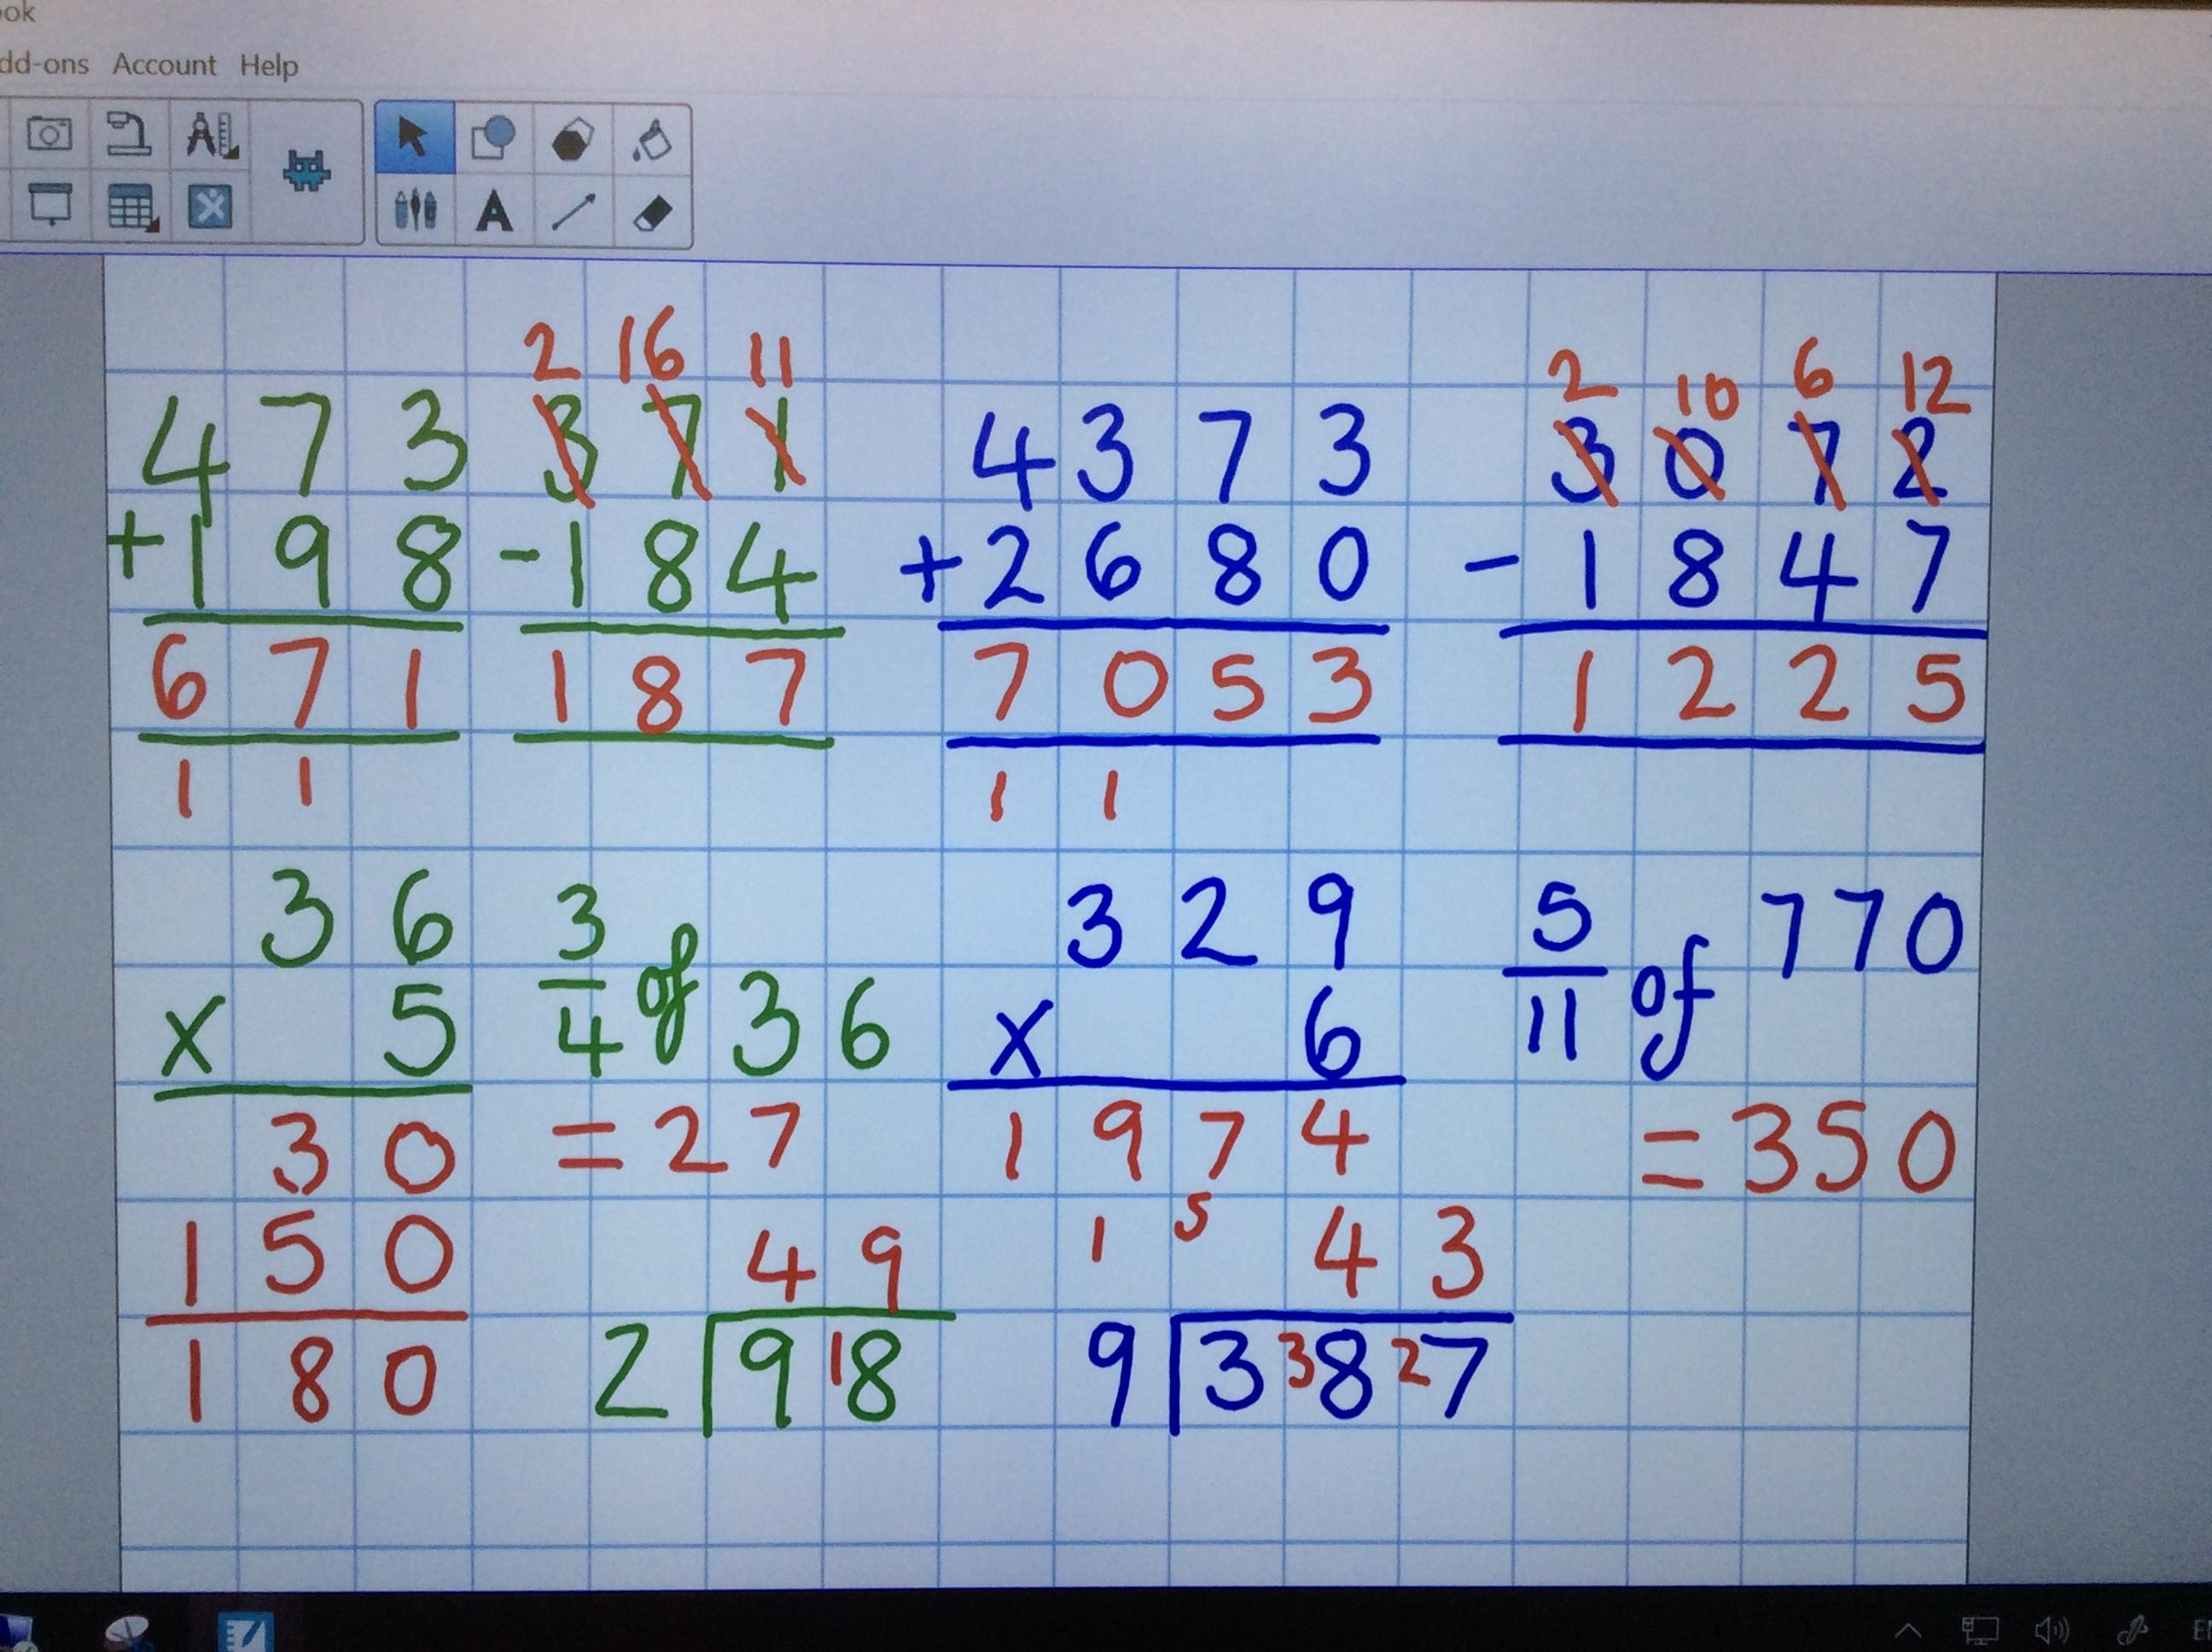 ok
dd-ons Account Help
2 16 11
2 10 6 12
4 7 3 3 7 1 4 3 7 3 3 0 7 2
+ 1 9 8 - 1 8 4 + 2 6 8 0 - 1 8 4 7
6 7 1 1 8 7 7 0 5 3 1 2 2 5
1 1 1 1
3 6 3/4 of 36 3 2 9 5/11 of 770
x 5 x 6
3 0 = 27 1 9 7 4 = 350
1 5
1 5 0 4 9 4 3
1 8 0 2 9 18 9 3 38 27